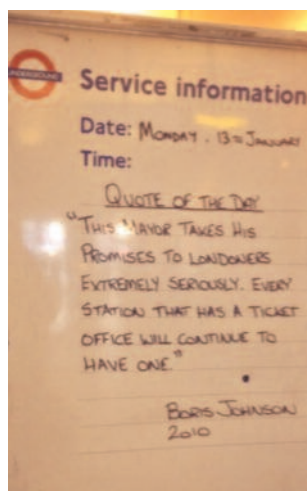 UNDERGROUND
Service information
Date: MONDAY . 13TH JANUARY
Time:
QUOTE OF THE DAY
"THIS MAYOR TAKES HIS
PROMISES TO LONDONERS
EXTREMELY SERIOUSLY. EVERY
STATION THAT HAS A TICKET
OFFICE WILL CONTINUE TO
HAVE ONE."
BORIS JOHNSON
2010